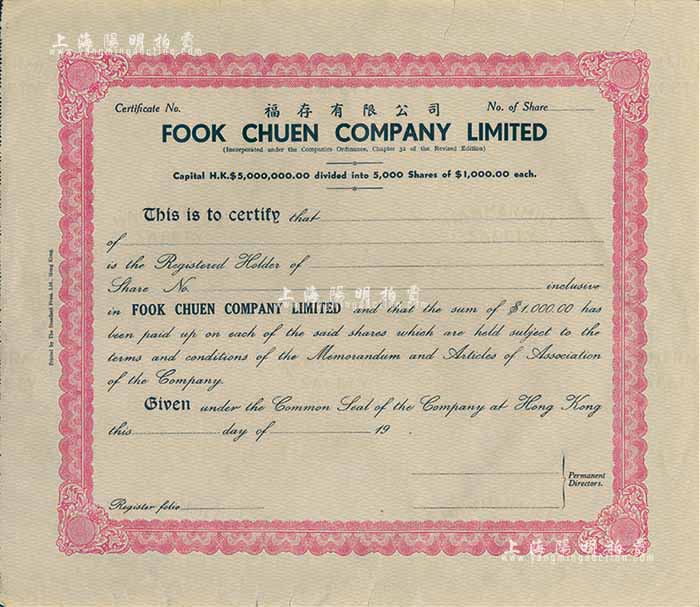 上海陽明拍賣
www.yangmingauction.com
Certificate No.
福存有限公司
No. of Share
FOOK CHUEN COMPANY LIMITED
(Incorporated under the Companies Ordinance, Chapter 32 of the Revised Edition)
Capital H.K.$5,000,000.00 divided into 5,000 Shares of $1,000.00 each.
This is to certify that
of
is the Registered Holder of
Share No. inclusive
上海陽明拍賣
www.yangmingauction.com
in FOOK CHUEN COMPANY LIMITED and that the sum of $1,000.00 has
been paid up on each of the said shares which are held subject to the
terms and conditions of the Memorandum and Articles of Association
of the Company.
Given under the Common Seal of the Company at Hong Kong
this day of 19 .
Permanent
Directors.
Register folio
Printed by The Standard Press, Ltd., Hong Kong.
上海陽明拍賣
www.yangmingauction.com